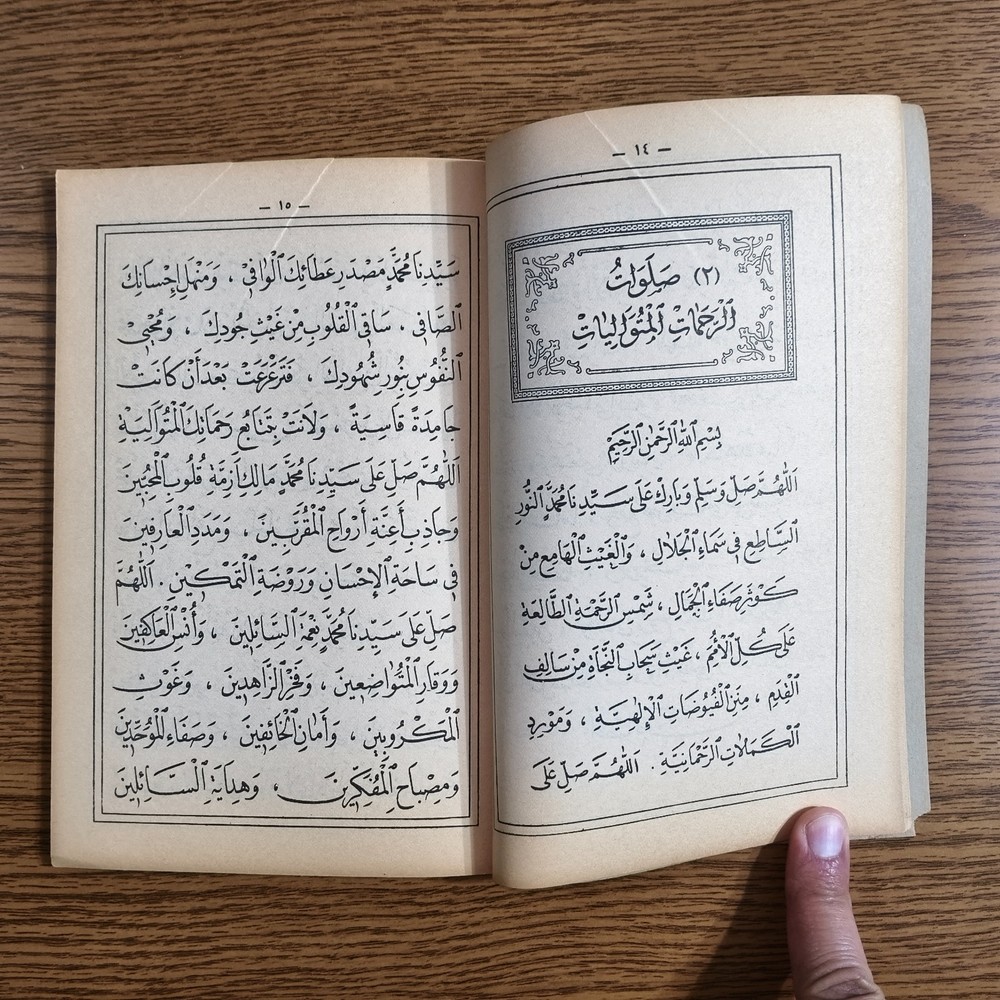 — ١٤ —
(٢) صَلَوَاتُ
ٱلرَّحَمَاتِ ٱلْمُتَوَالِيَاتِ
بِسْمِ ٱللهِ ٱلرَّحْمٰنِ ٱلرَّحِيْمِ
اَللّٰهُمَّ صَلِّ وَسَلِّمْ وَبَارِكْ عَلَى سَيِّدِنَا مُحَمَّدٍ ٱلنُّورِ
ٱلسَّاطِعِ فِي سَمَاءِ ٱلْجَلَالِ ، وَٱلْغَيْثِ ٱلْهَامِعِ مِنْ
كَوْثَرِ صَفَاءِ ٱلْجَمَالِ ، شَمْسِ ٱلرَّحْمَةِ ٱلطَّالِعَةِ
عَلَى كُلِّ ٱلْأُمَمِ ، غَيْثِ سَحَابِ ٱلنَّجَاةِ مِنْ سَالِفِ
ٱلْقِدَمِ ، مِنَنِ ٱلْفُيُوضَاتِ ٱلْإِلٰهِيَّةِ ، وَمَوْرِدِ
ٱلْكَمَالَاتِ ٱلرَّحْمَانِيَّةِ . اَللّٰهُمَّ صَلِّ عَلَى
— ١٥ —
سَيِّدِنَا مُحَمَّدٍ مَصْدَرِ عَطَائِكَ ٱلْوَافِي ، وَمَنْهَلِ إِحْسَانِكَ
ٱلصَّافِي . سَاقِي ٱلْقُلُوبِ مِنْ غَيْثِ جُودِكَ ، وَمُحْيِي
ٱلنُّفُوسِ بِنُورِ شُهُودِكَ ، فَتَرَعْرَعَتْ بَعْدَ أَنْ كَانَتْ
جَامِدَةً قَاسِيَةً ، وَلَانَتْ بِتَتَابُعِ رَحَمَاتِكَ ٱلْمُتَوَالِيَةِ
اَللّٰهُمَّ صَلِّ عَلَى سَيِّدِنَا مُحَمَّدٍ مَالِكِ أَزِمَّةِ قُلُوبِ ٱلْمُحِبِّينَ
وَجَاذِبِ أَعِنَّةِ أَرْوَاحِ ٱلْمُقَرَّبِينَ ، وَمَدَدِ ٱلْعَارِفِينَ
فِي سَاحَةِ ٱلْإِحْسَانِ وَرَوْضَةِ ٱلتَّمْكِينِ . اَللّٰهُمَّ
صَلِّ عَلَى سَيِّدِنَا مُحَمَّدٍ نِعْمَةِ ٱلسَّائِلِينَ ، وَأُنْسِ ٱلْعَاكِفِينَ
وَوَقَارِ ٱلْمُتَوَاضِعِينَ ، وَفَخْرِ ٱلزَّاهِدِينَ ، وَغَوْثِ
ٱلْمَكْرُوبِينَ ، وَأَمَانِ ٱلْخَائِفِينَ ، وَصَفَاءِ ٱلْمُوَحِّدِينَ
وَمِصْبَاحِ ٱلْمُفَكِّرِينَ ، وَهِدَايَةِ ٱلسَّائِلِينَ